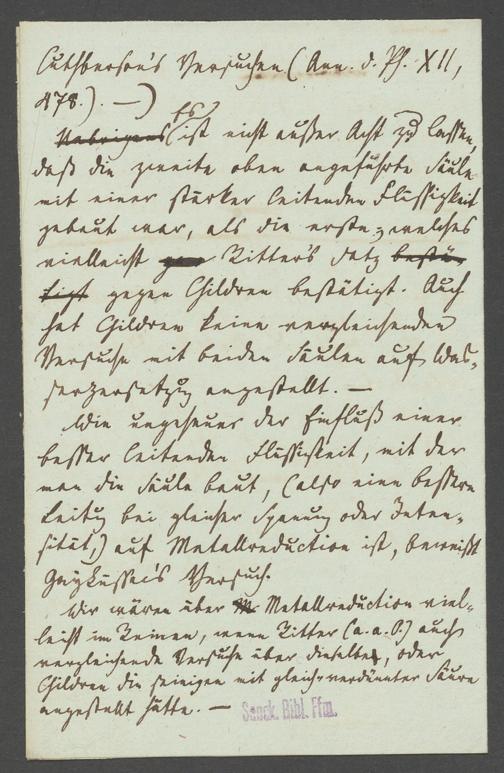 Cuthberson's Versuchen (Ann. d. Ph. XII,
478.). —)
Uebrigens Es ist nicht außer Acht zu lassen,
daß die zweite oben angeführte Säule
mit einer stärker leitenden Flüssigkeit
gebaut war, als die erste; welches
vielleicht Ritter's Satz bestä-
tigt gegen Children bestätigt. Auch
hat Children keine vergleichenden
Versuche mit beiden Säulen auf Was-
serzersetzung angestellt. —
Wie ungeheuer der Einfluß einer
besser leitenden Flüssigkeit, mit der
man die Säule baut, (also eine bessere
Leitung bei gleicher Spannung oder Inten-
sität,) auf Metallreduction ist, beweißt
Gaylussac's Versuch.
Wir wären über M Metallreduction viel-
leicht im Reinen, wenn Ritter (a.a.O.) auch
vergleichende Versuche über dieselbe, oder
Children die seinigen mit gleich verdünnter Säure
angestellt hätte. —
Senck. Bibl. Ffm.